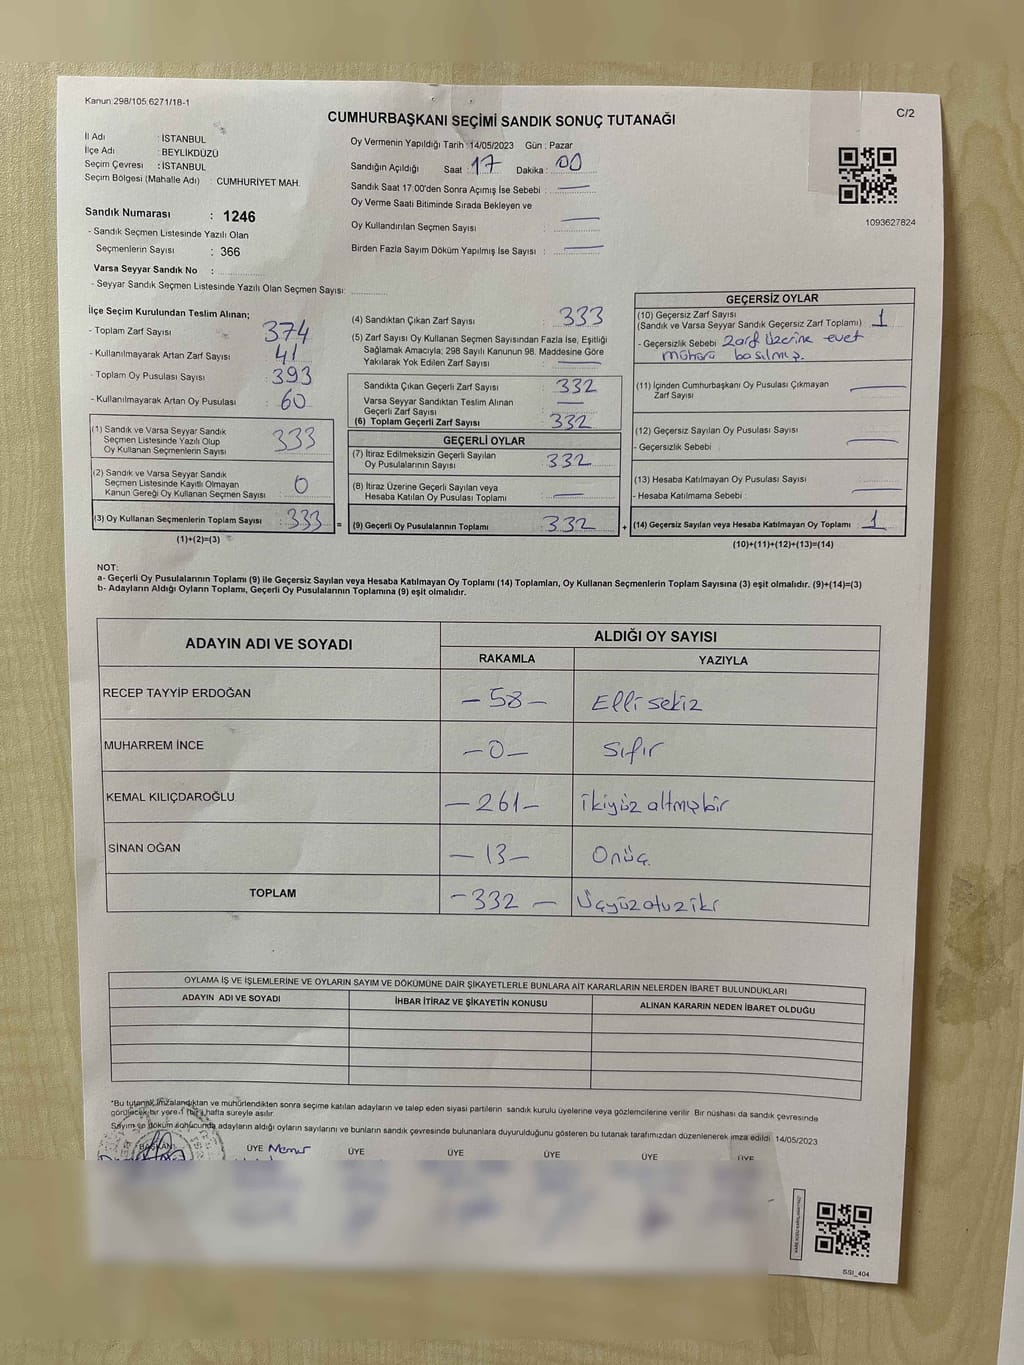 Kanun:298/105,6271/18-1
C/2
CUMHURBAŞKANI SEÇİMİ SANDIK SONUÇ TUTANAĞI
İl Adı : İSTANBUL
İlçe Adı : BEYLİKDÜZÜ
Seçim Çevresi : İSTANBUL
Seçim Bölgesi (Mahalle Adı) : CUMHURİYET MAH.
Sandık Numarası : 1246
- Sandık Seçmen Listesinde Yazılı Olan
Seçmenlerin Sayısı : 366
Varsa Seyyar Sandık No :
- Seyyar Sandık Seçmen Listesinde Yazılı Olan Seçmen Sayısı:
Oy Vermenin Yapıldığı Tarih :14/05/2023 Gün : Pazar
Sandığın Açıldığı Saat : 17 Dakika : 00
Sandık Saat 17:00'den Sonra Açımış İse Sebebi : —
Oy Verme Saati Bitiminde Sırada Bekleyen ve
Oy Kullandırılan Seçmen Sayısı : —
Birden Fazla Sayım Döküm Yapılmış İse Sayısı : —
1093627824
İlçe Seçim Kurulundan Teslim Alınan;
- Toplam Zarf Sayısı : 374
- Kullanılmayarak Artan Zarf Sayısı : 41
- Toplam Oy Pusulası Sayısı : 393
- Kullanılmayarak Artan Oy Pusulası : 60
(1) Sandık ve Varsa Seyyar Sandık
Seçmen Listesinde Yazılı Olup
Oy Kullanan Seçmenlerin Sayısı : 333
(2) Sandık ve Varsa Seyyar Sandık
Seçmen Listesinde Kayıtlı Olmayan
Kanun Gereği Oy Kullanan Seçmen Sayısı : 0
(3) Oy Kullanan Seçmenlerin Toplam Sayısı : 333 =
(1)+(2)=(3)
(4) Sandıktan Çıkan Zarf Sayısı : 333
(5) Zarf Sayısı Oy Kullanan Seçmen Sayısından Fazla İse, Eşitliği
Sağlamak Amacıyla; 298 Sayılı Kanunun 98. Maddesine Göre
Yakılarak Yok Edilen Zarf Sayısı : —
Sandıkta Çıkan Geçerli Zarf Sayısı : 332
Varsa Seyyar Sandıktan Teslim Alınan
Geçerli Zarf Sayısı : —
(6) Toplam Geçerli Zarf Sayısı : 332
GEÇERLİ OYLAR
(7) İtiraz Edilmeksizin Geçerli Sayılan
Oy Pusulalarının Sayısı : 332
(8) İtiraz Üzerine Geçerli Sayılan veya
Hesaba Katılan Oy Pusulası Toplamı : —
(9) Geçerli Oy Pusulalarının Toplamı : 332 +
GEÇERSİZ OYLAR
(10) Geçersiz Zarf Sayısı
(Sandık ve Varsa Seyyar Sandık Geçersiz Zarf Toplamı) : 1
- Geçersizlik Sebebi : Zarf üzerine evet
mührü basılmış.
(11) İçinden Cumhurbaşkanı Oy Pusulası Çıkmayan
Zarf Sayısı : —
(12) Geçersiz Sayılan Oy Pusulası Sayısı
- Geçersizlik Sebebi : —
(13) Hesaba Katılmayan Oy Pusulası Sayısı
- Hesaba Katılmama Sebebi : —
(14) Geçersiz Sayılan veya Hesaba Katılmayan Oy Toplamı : 1
(10)+(11)+(12)+(13)=(14)
NOT:
a- Geçerli Oy Pusulalarının Toplamı (9) ile Geçersiz Sayılan veya Hesaba Katılmayan Oy Toplamı (14) Toplamları, Oy Kullanan Seçmenlerin Toplam Sayısına (3) eşit olmalıdır. (9)+(14)=(3)
b- Adayların Aldığı Oyların Toplamı, Geçerli Oy Pusulalarının Toplamına (9) eşit olmalıdır.
ADAYIN ADI VE SOYADI ALDIĞI OY SAYISI
RAKAMLA YAZIYLA
RECEP TAYYİP ERDOĞAN -58- Elli sekiz
MUHARREM İNCE -0- Sıfır
KEMAL KILIÇDAROĞLU -261- ikiyüz altmışbir
SİNAN OĞAN -13- Onüç.
TOPLAM -332- Üçyüzotuziki
OYLAMA İŞ VE İŞLEMLERİNE VE OYLARIN SAYIM VE DÖKÜMÜNE DAİR ŞİKAYETLERLE BUNLARA AİT KARARLARIN NELERDEN İBARET BULUNDUKLARI
ADAYIN ADI VE SOYADI İHBAR İTİRAZ VE ŞİKAYETİN KONUSU ALINAN KARARIN NEDEN İBARET OLDUĞU
*Bu tutanak imzalandıktan ve mühürlendikten sonra seçime katılan adayların ve talep eden siyasi partilerin sandık kurulu üyelerine veya gözlemcilerine verilir. Bir nüshası da sandık çevresinde
görülecek bir yere 1 (bir) hafta süreyle asılır.
Sayım ve döküm sonucunda adayların aldığı oyların sayılarını ve bunların sandık çevresinde bulunanlara duyurulduğunu gösteren bu tutanak tarafımızdan düzenlenerek imza edildi. 14/05/2023
BAŞKAN ÜYE Memur ÜYE ÜYE ÜYE ÜYE ÜYE
SSI_404